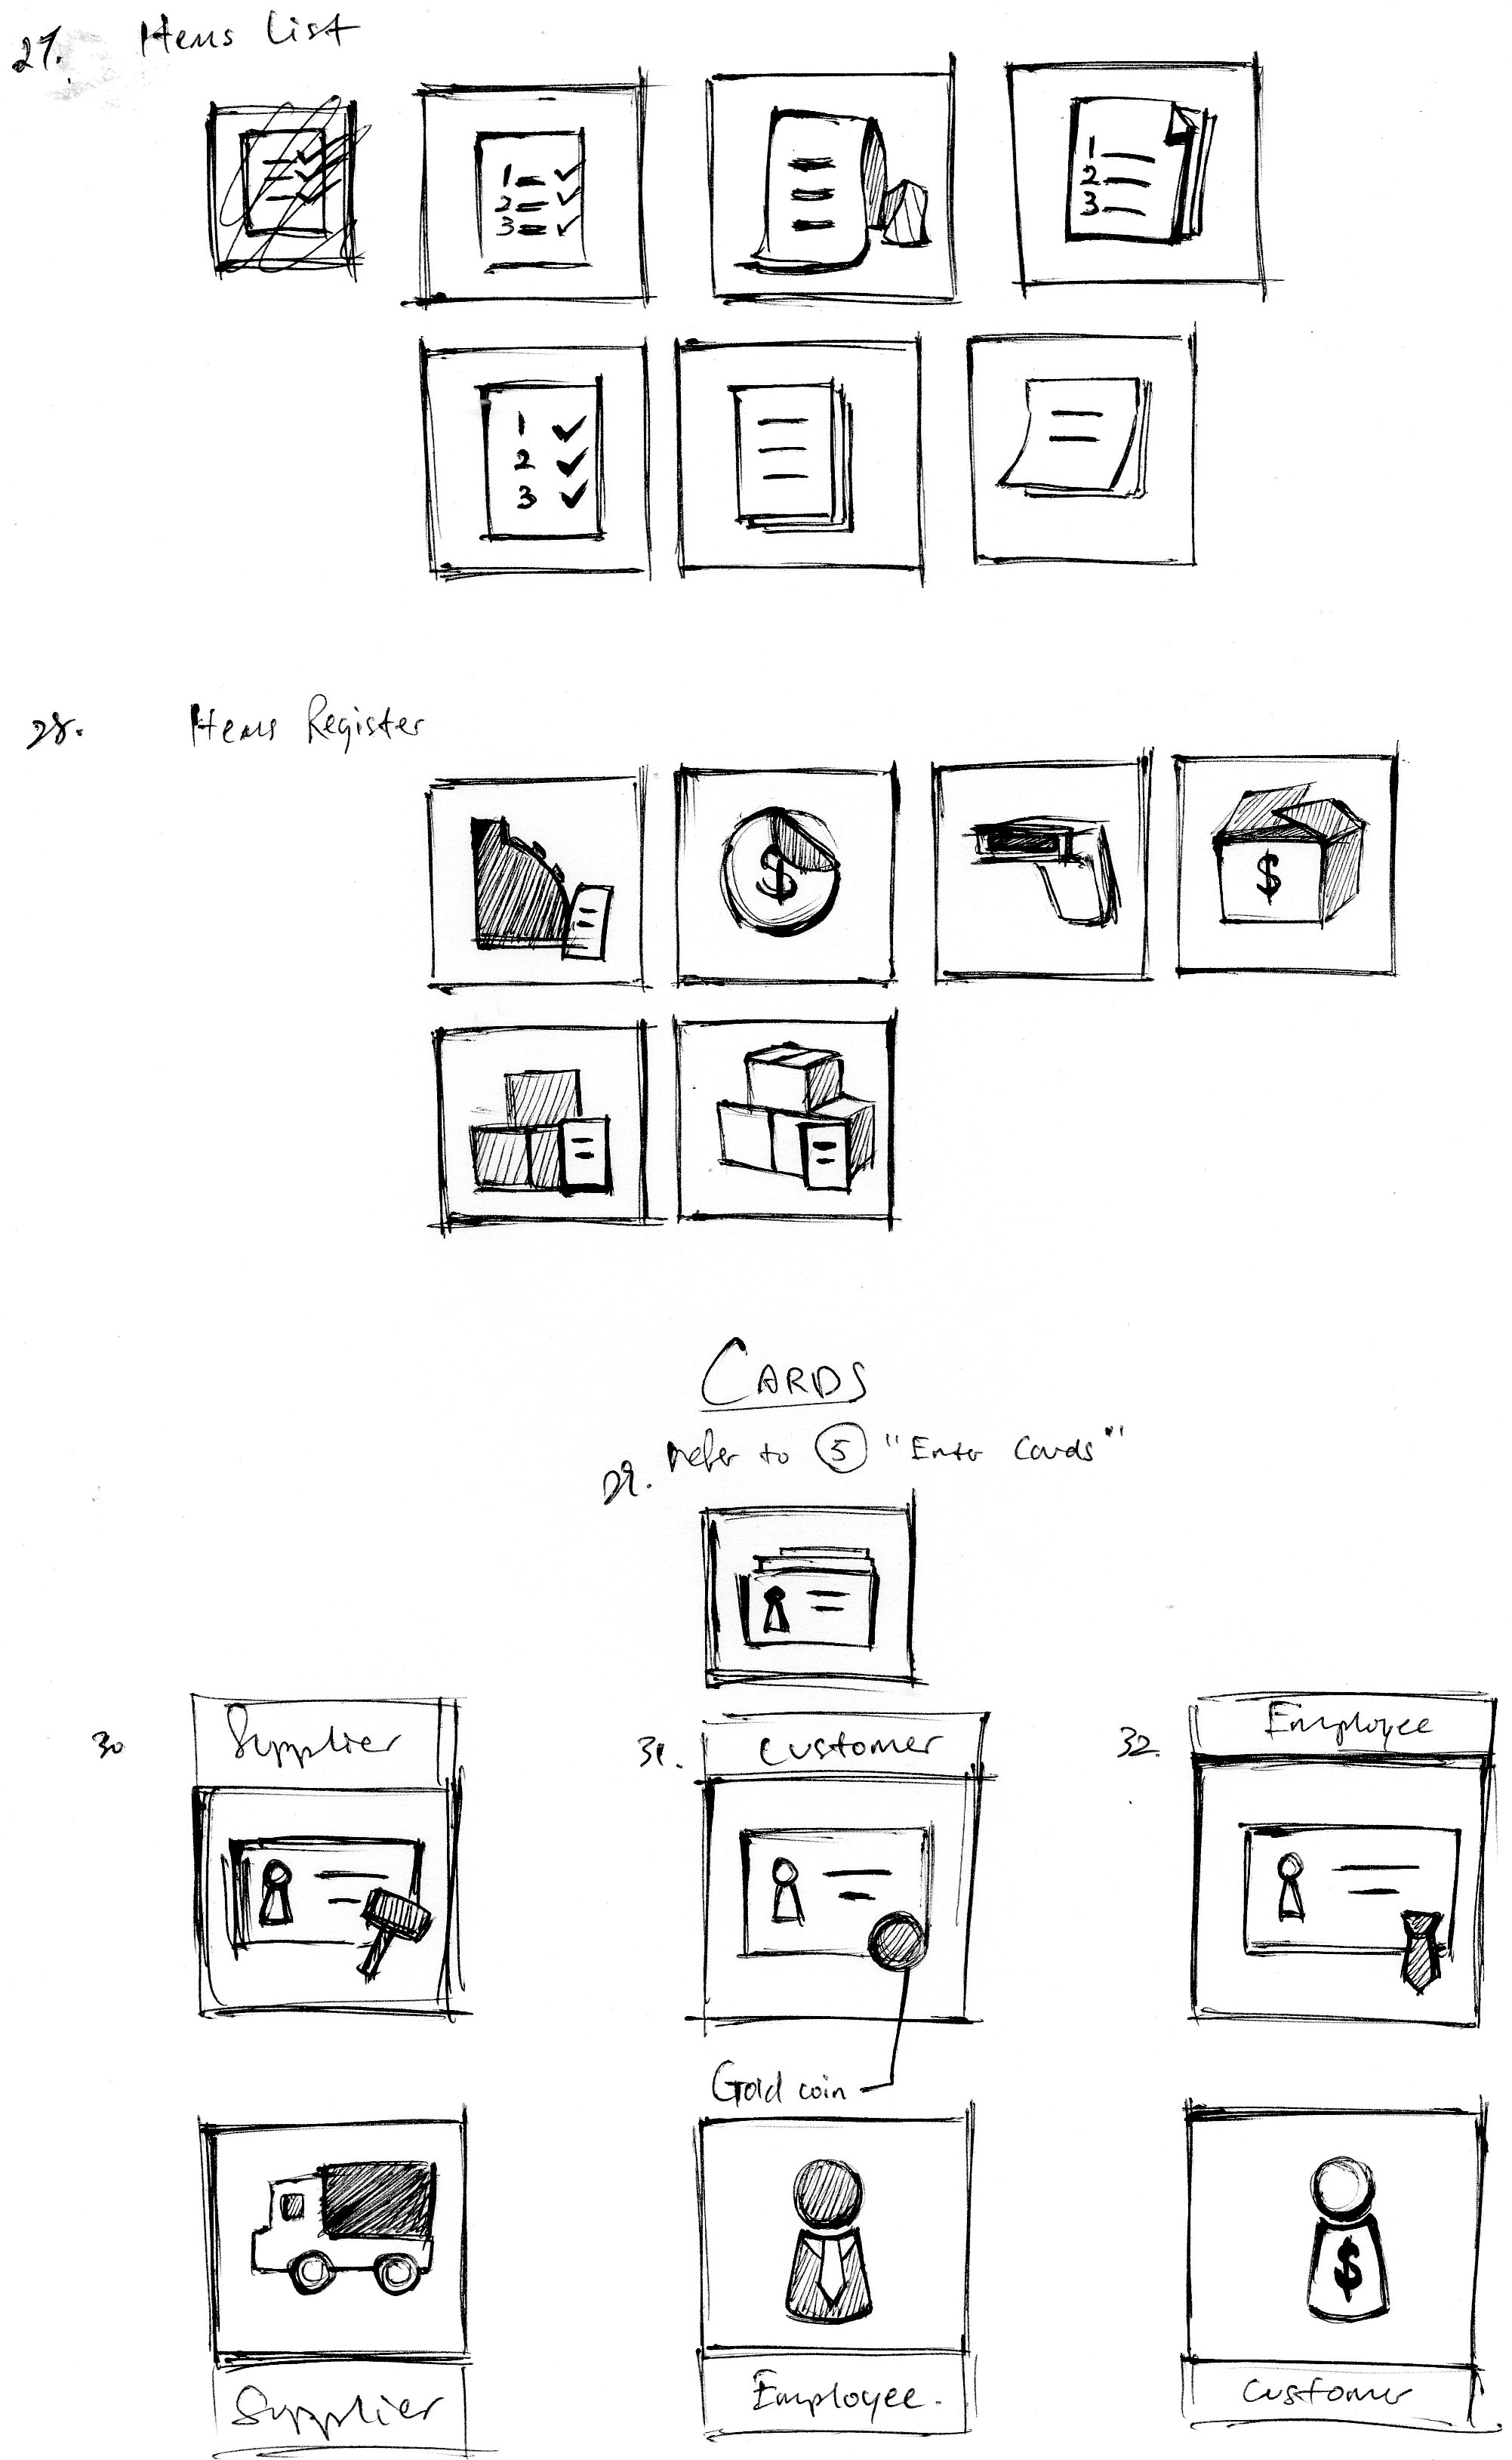 27. Items List
1 2 3
1 2 3
1 2 3
28. Items Register
$
$
CARDS
29. refer to 5 "Enter Cards"
30 Supplier
31. Customer
32. Employee
Gold coin
$
Supplier
Employee.
Customer